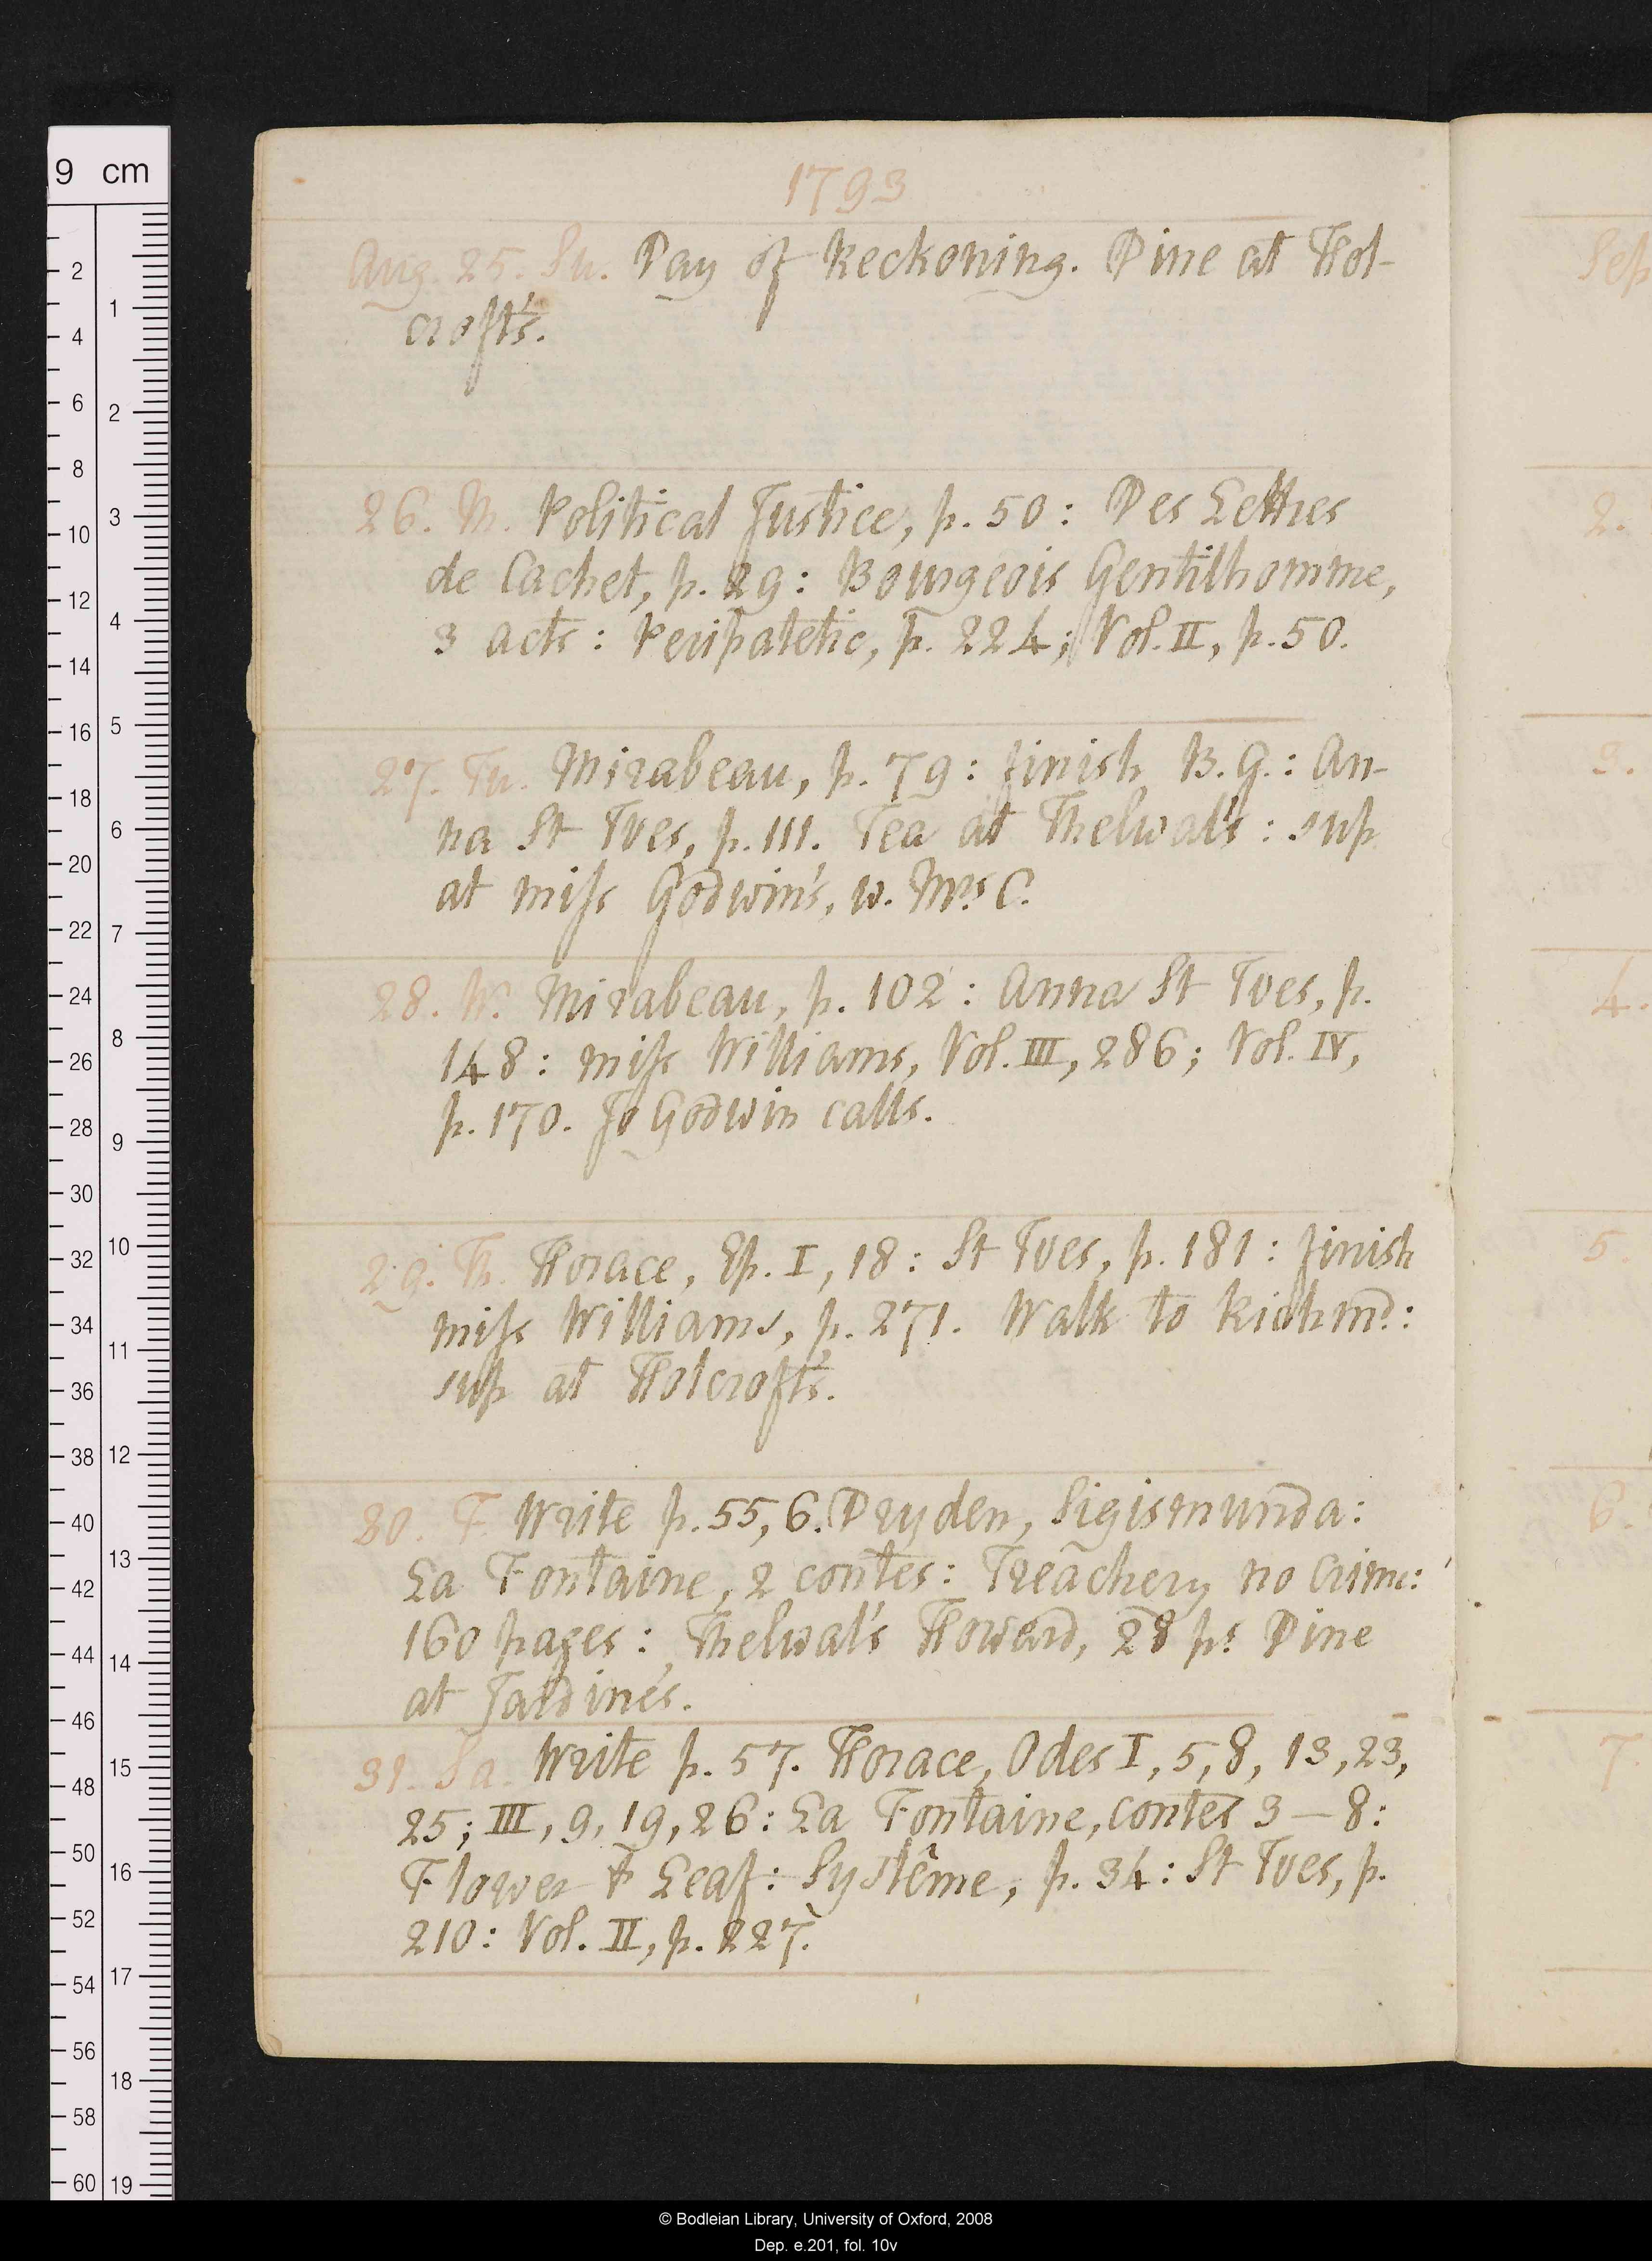 1793
Aug. 25. Su. Day of Reckoning. Dine at Hol-
croft's.
26. M. Political Justice, p. 50: Des Lettres
de Cachet, p. 29: Bourgeois Gentilhomme,
3 acts: Peripatetic, p. 224; Vol. II, p. 50.
27. Tu. Mirabeau, p. 79: finish B. G.: An-
na St Ives, p. 111. Tea at Thelwal's: sup
at miss Godwin's, w. Mrs C.
28. W. Mirabeau, p. 102: Anna St Ives, p.
148: miss Williams, Vol. III, 286; Vol. IV,
p. 170. Jo Godwin calls.
29. Th. Horace, Ep. I, 18: St Ives, p. 181: finish
miss Williams, p. 271. Walk to Richmd:
sup at Holcroft's.
30. F. Write p. 55, 6. Dryden, Sigismunda:
La Fontaine, 2 contes: Treachery no Crime:
160 pages: Thelwal's Howard, 28 ps Dine
at Jardine's.
31. Sa. Write p. 57. Horace, Odes I, 5, 8, 13, 23,
25; III, 9, 19, 26: La Fontaine, contes 3—8:
Flower & Leaf: Systême, p. 34: St Ives, p.
210: Vol. II, p. 227.
Sep
2.
3.
4.
5.
6.
7
9 cm
2
4
6
8
10
12
14
18
16
18
20
22
24
26
28
30
32
34
36
38
40
42
44
46
48
50
52
54
56
58
60
1
2
3
4
5
6
7
8
9
10
11
12
13
14
15
16
17
18
19
© Bodleian Library, University of Oxford, 2008
Dep. e.201, fol. 10v